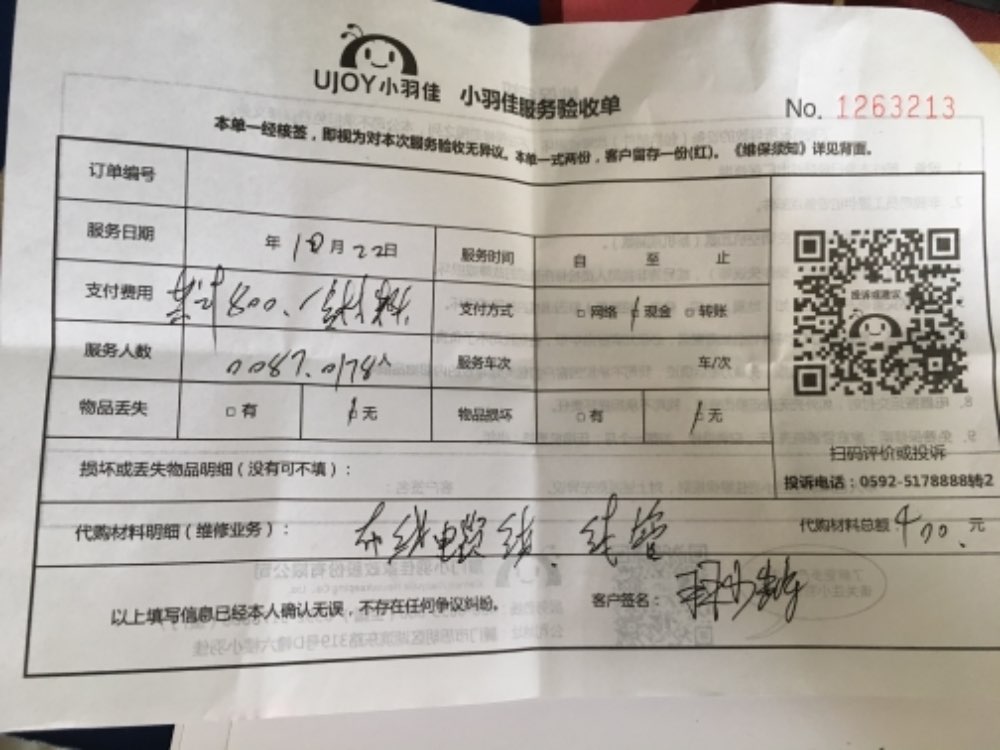 UJOY小羽佳 小羽佳服务验收单
No. 1263213
本单一经核签，即视为对本次服务验收无异议。本单一式两份，客户留存一份(红)。《维保须知》详见背面。
订单编号
服务日期 年 10月 22日 服务时间 自 至 止
支付费用 800. 支付方式 □网络 □现金 □转账
服务人数 0087.0178 服务车次 车/次
物品丢失 □有 □无 物品损坏 □有 □无
投诉或建议
扫码评价或投诉
投诉电话：0592-5178888转2
损坏或丢失物品明细（没有可不填）：
代购材料明细（维修业务）： 布线电缆线. 线管 代购材料总额 400. 元
以上填写信息已经本人确认无误，不存在任何争议纠纷。 客户签名：